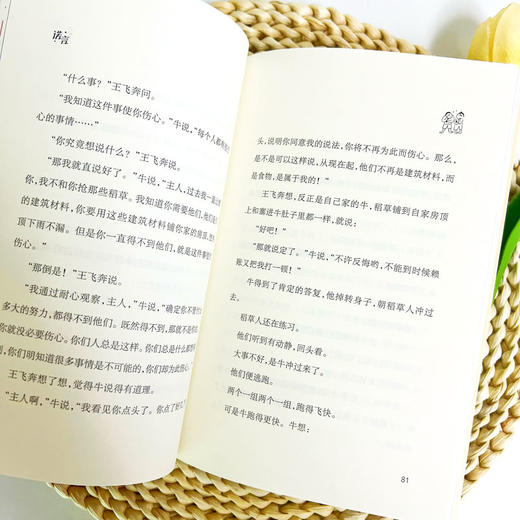 诺言
“什么事？”王飞奔问。
“我知道这件事使你伤心。”牛说，“每个人都有伤
心的事情……”
“你究竟想说什么？”王飞奔说。
“那我就直说好了。”牛说，“主人，过去我一直
你，我不和你抢那些稻草。我知道你需要他们，他们
的建筑材料，你要用这些建筑材料铺你家的房顶，
顶下雨不漏。但是你一直得不到他们，就是这件事
伤心。”
“那倒是！”王飞奔说。
“我通过耐心观察，主人，”牛说，“确定你不管
多大的努力，都得不到他们。既然得不到，那就不是你
你就没必要伤心。你们人总是这样。你们总是什么都想
到，你们明知道很多事情是不可能的，你们却为此伤心。”
王飞奔想了想，觉得牛说得有道理。
“主人啊，”牛说，“我看见你点头了。你点了好
头，说明你同意我的说法，你将不再为此而伤心。那么，
是不是可以这样说，从现在起，他们不再是建筑材料，而
是食物，是属于我的！”
王飞奔想，反正是自己家的牛，稻草铺到自家房顶
上和塞进牛肚子里都一样，就说：
“好吧！”
“那就说定了。”牛说，“不许反悔哟，不能到时候赖
账又把我打一顿！”
牛得到了肯定的答复，他掉转身子，朝稻草人冲过
去。
稻草人还在练习。
他们听到有动静，回头看。
大事不好，是牛冲过来了。
他们便逃跑。
两个一组两个一组，跑得飞快。
可是牛跑得更快。牛想：
81